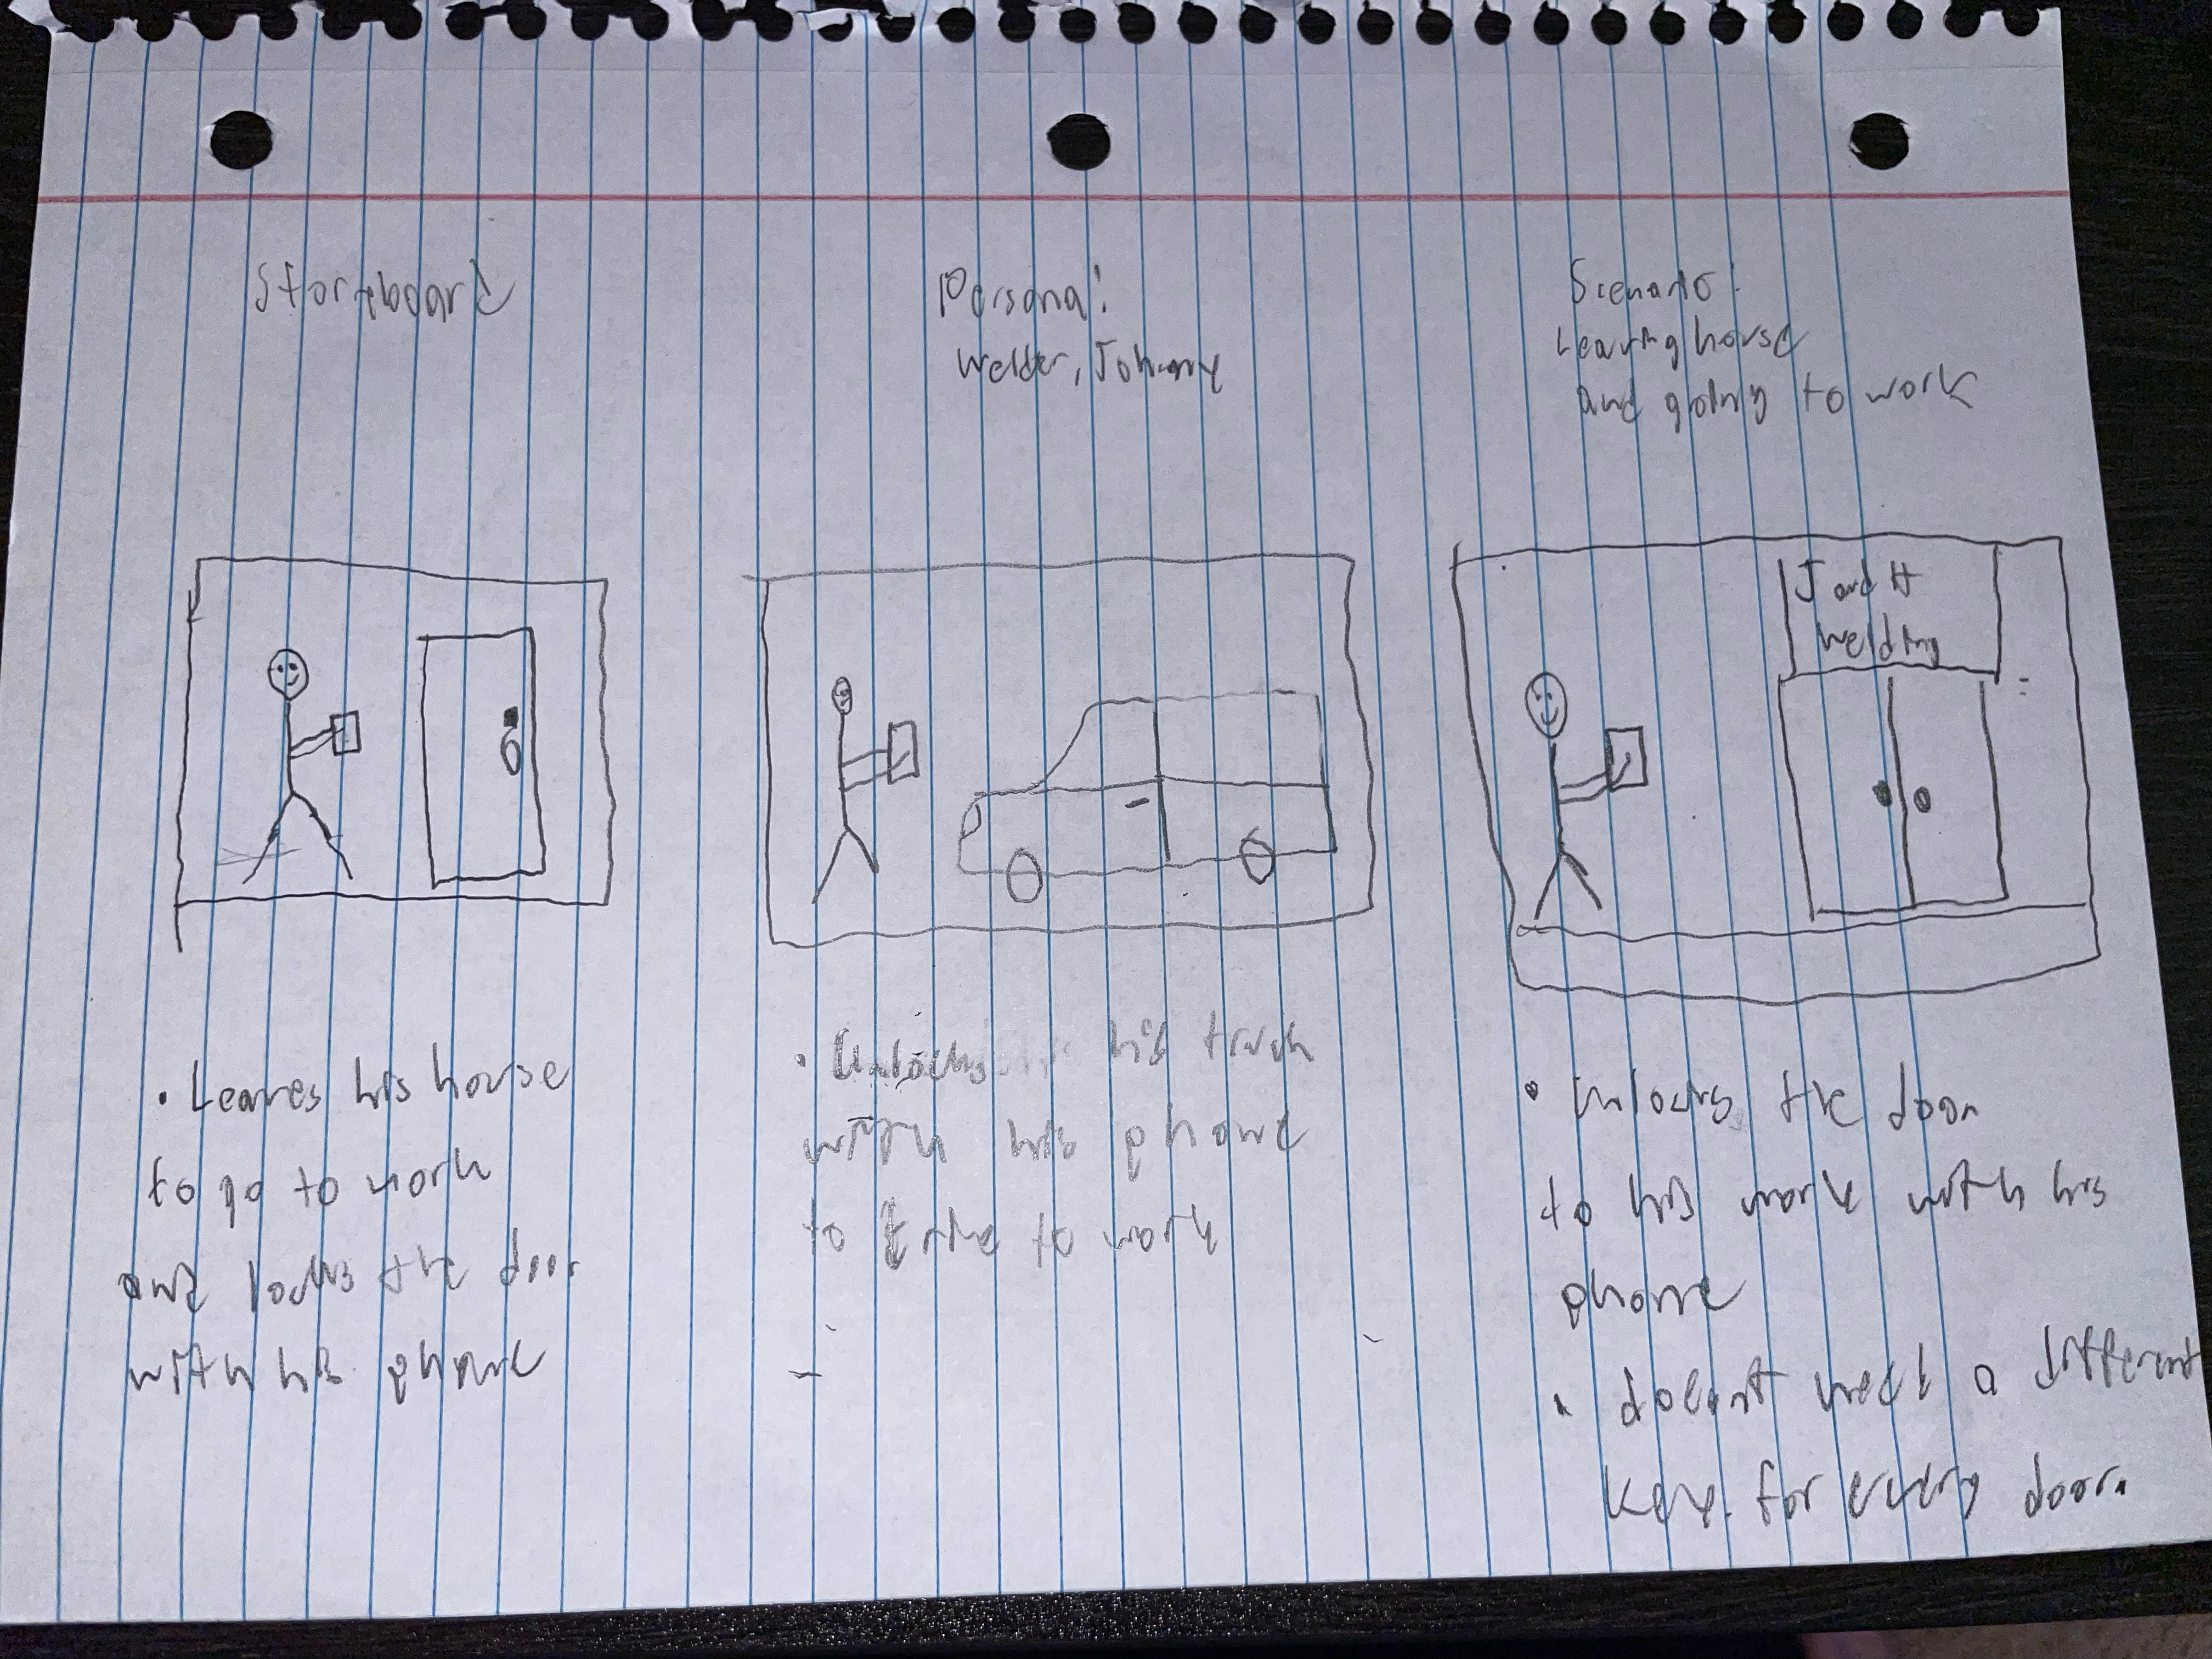 Storyboard
Persona:
Welder, Johnny
Scenario:
Leaving house
and going to work
J and H
Welding
• Leaves his house
to go to work
and locks the door
with his phone
• Unlocks his truck
with his phone
to drive to work
• unlocks the door
to his work with his
phone
• doesnt need a different
key for every door.